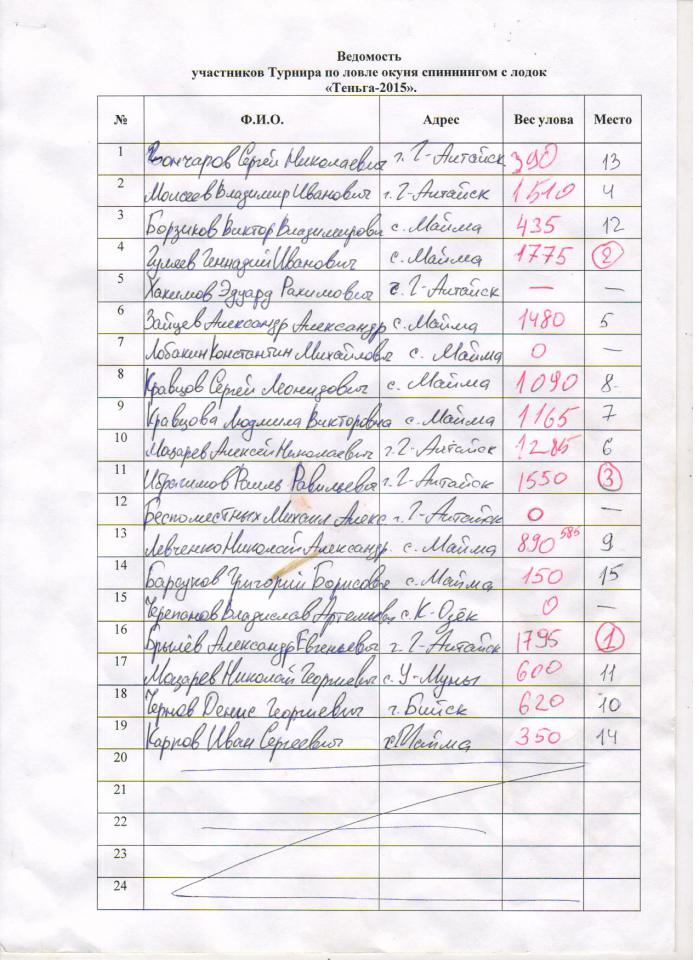 Ведомость
участников Турнира по ловле окуня спиннингом с лодок
«Теньга-2015».
№ Ф.И.О. Адрес Вес улова Место
1 Гончаров Сергей Николаевич г. Г-Алтайск 390 13
2 Моисеев Владимир Иванович г. Г-Алтайск 1510 4
3 Борзиков Виктор Владимирович с. Майма 435 12
4 Гуляев Геннадий Иванович с. Майма 1775 2
5 Хакимов Эдуард Рахимович г. Г-Алтайск — —
6 Зайцев Александр Александр с. Майма 1480 5
7 Лобакин Константин Михайлович с. Майма 0 —
8 Кравцов Сергей Леонидович с. Майма 1090 8
9 Кравцова Людмила Викторовна с. Майма 1165 7
10 Мацарев Алексей Николаевич г. Г-Алтайск 1285 6
11 Ибрагимов Раиль Равильевич г. Г-Алтайск 1550 3
12 Беспоместных Михаил Алекс г. Г-Алтайск 0 —
13 Левченко Николай Александр. с. Майма 890 585 9
14 Барсуков Григорий Борисович с. Майма 150 15
15 Черепанов Владислав Артемович с. К-Озёк 0 —
16 Брылёв Александр Евгеньевич г. Г-Алтайск 1795 1
17 Мацарев Николай Георгиевич с. У-Муны 600 11
18 Чернов Денис Георгиевич г. Бийск 620 10
19 Карпов Иван Сергеевич с. Майма 350 14
20
21
22
23
24